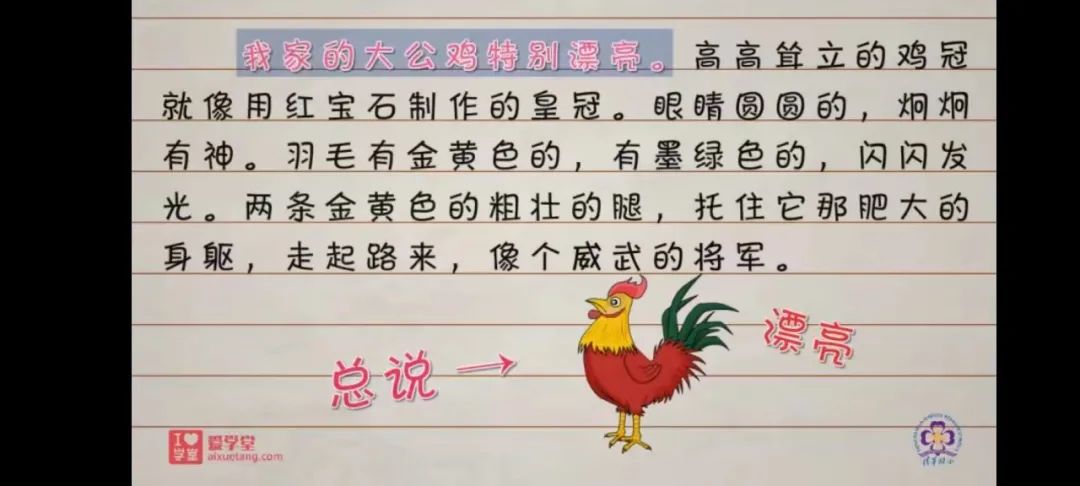 我家的大公鸡特别漂亮。高高耸立的鸡冠
就像用红宝石制作的皇冠。眼睛圆圆的，炯炯
有神。羽毛有金黄色的，有墨绿色的，闪闪发
光。两条金黄色的粗壮的腿，托住它那肥大的
身躯，走起路来，像个威武的将军。
漂亮
总说
I
学堂
爱学堂
aixuetang.com